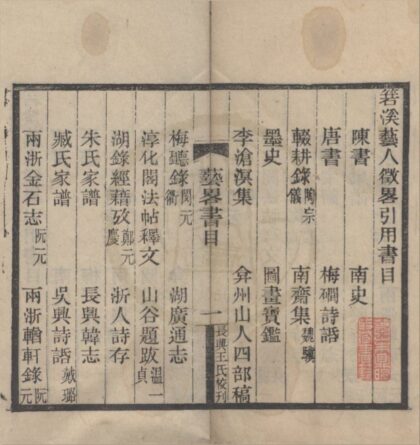 箬溪藝人徵畧引用書目
陳書 南史
唐書 梅磵詩話
輟耕錄 陶宗儀 南齋集 魏驥
墨史 圖畫寶鑑
李滄溟集 弇州山人四部稿
藝畧書目 一 長興王氏校刊
梅聽錄 閔元衢 湖廣通志
淳化閣法帖釋文 山谷題跋 溫一貞
湖錄經籍攷 鄭元慶 浙人詩存
朱氏家譜 長興韓志
臧氏家譜 吳興詩話 戴璐
兩浙金石志 阮元 兩浙輶軒錄 阮元